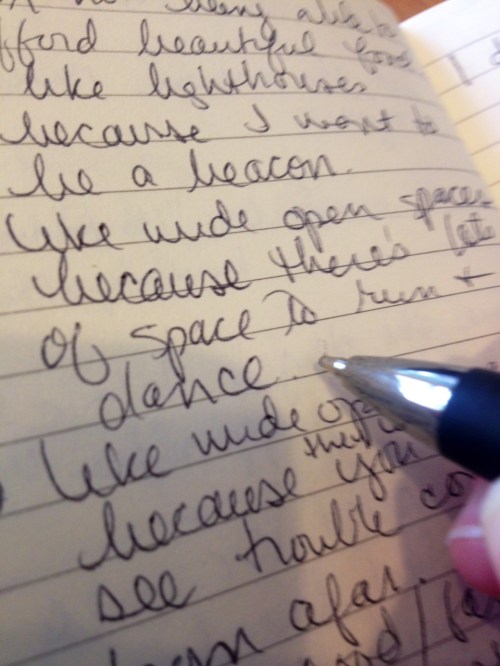 being able to
fford beautiful food
like lighthouses
because I want to
be a beacon.
like wide open spaces
because there's lots
of space to run +
dance..
like wide
because you
see trouble
afar.